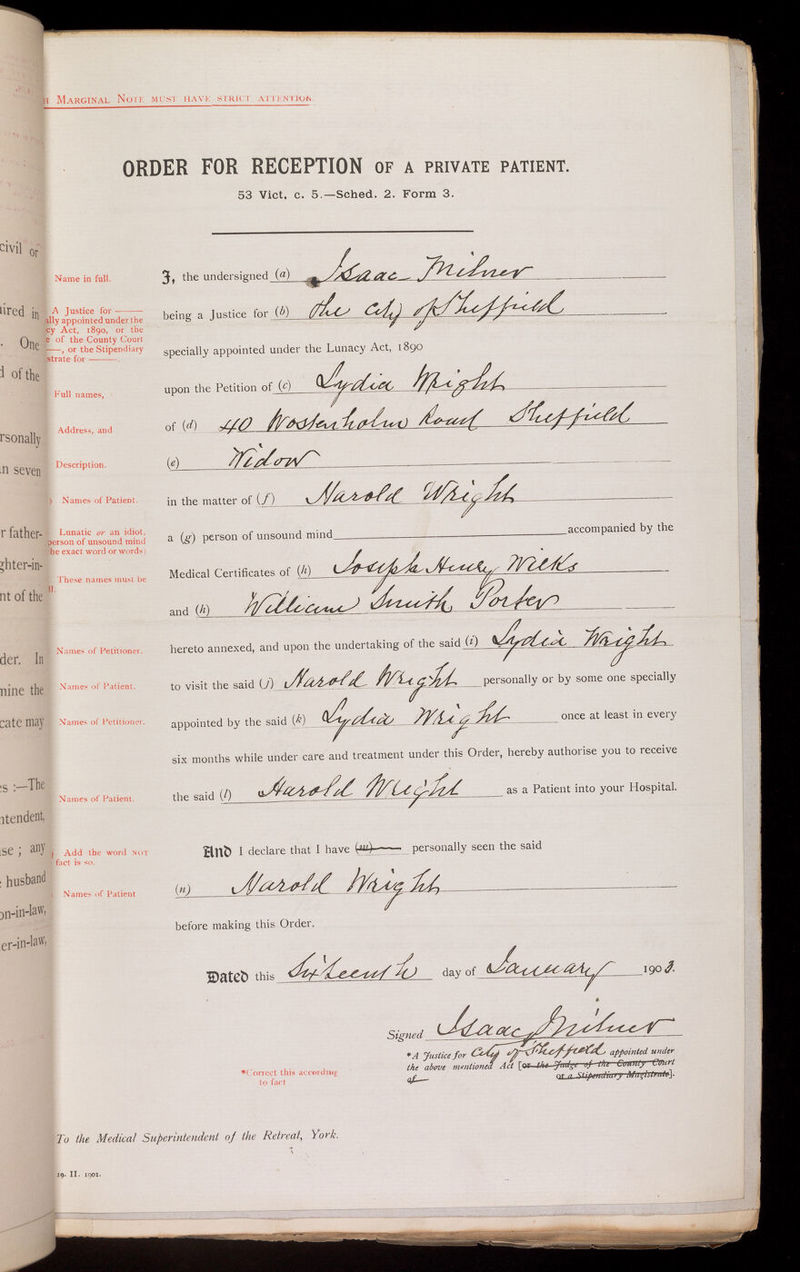 MARGINAL NOTE MUST HAVE STRICT ATTENTION.
ORDER FOR RECEPTION OF A PRIVATE PATIENT.
53 Vict. c. 5.—Sched. 2. Form 3.
civil or
Name in full.
I, the undersigned (a) Isaac Milner
ired in
A Justice for ——
ally appointed under the
cy Act, 1890, or the
e of the County Court
——, or the Stipendiary
strate for ——.
being a Justice for (b) the City of Sheffield
One
specially appointed under the Lunacy Act, 1890
l of the
Full names,
upon the Petition of (c) Lydia Wright
Address, and
of (d) 40 Wostenholm Road Sheffield
rsonally
n seven
Description.
(e) Widow
Names of Patient.
in the matter of (f) Harold Wright
r father-
Lunatic or an idiot,
person of unsound mind
he exact word or words)
a (g) person of unsound mind accompanied by the
ghter-in-
These names must be
Medical Certificates of (h) Joseph Henry Wilks
nt of the
and (h) William Smith Porter
der. In
Names of Petitioner.
hereto annexed, and upon the undertaking of the said (i) Lydia Wright
nine the
Names of Patient.
to visit the said (j) Harold Wright personally or by some one specially
cate may
Names of Petitioner.
appointed by the said (k) Lydia Wright once at least in every
six months while under care and treatment under this Order, hereby authorise you to receive
s :—The
Names of Patient.
the said (l) Harold Wright as a Patient into your Hospital.
ntendent,
se ; any
Add the word NOT
fact is so.
And I declare that I have (m)—— personally seen the said
husband
Names of Patient
(n) Harold Wright
on-in-law,
before making this Order.
er-in-law,
Dated this Sixteenth day of January 1903.
Signed Isaac Milner
*A Justice for City of Sheffield appointed under
the above mentioned Act [or the Judge of the County Court
of —— or a Stipendiary Magistrate].
*Correct this according
to fact
To the Medical Superintendent of the Retreat, York.
19. II. 1901.